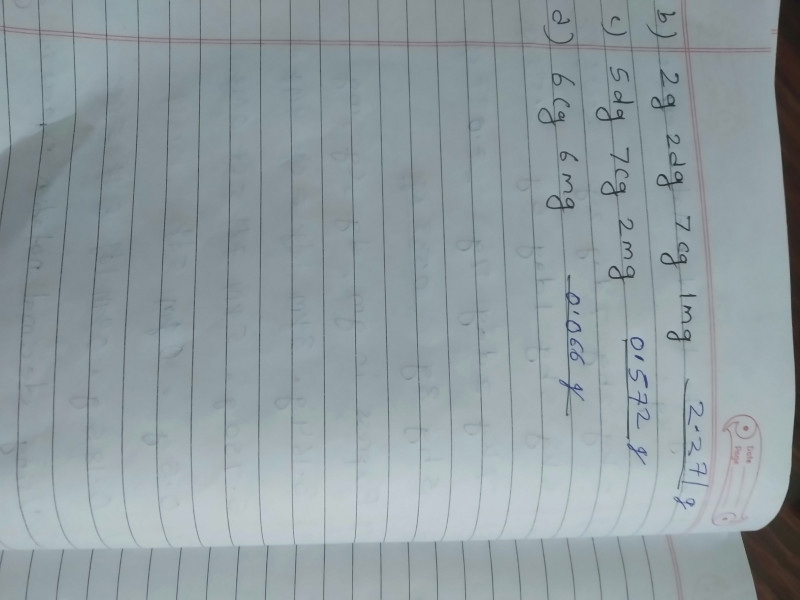 Date
Page
b) 2g 2dg 7cg 1mg 2.271g
c) 5dg 7cg 2mg 0.572 g
d) 6cg 6mg 0.066 g